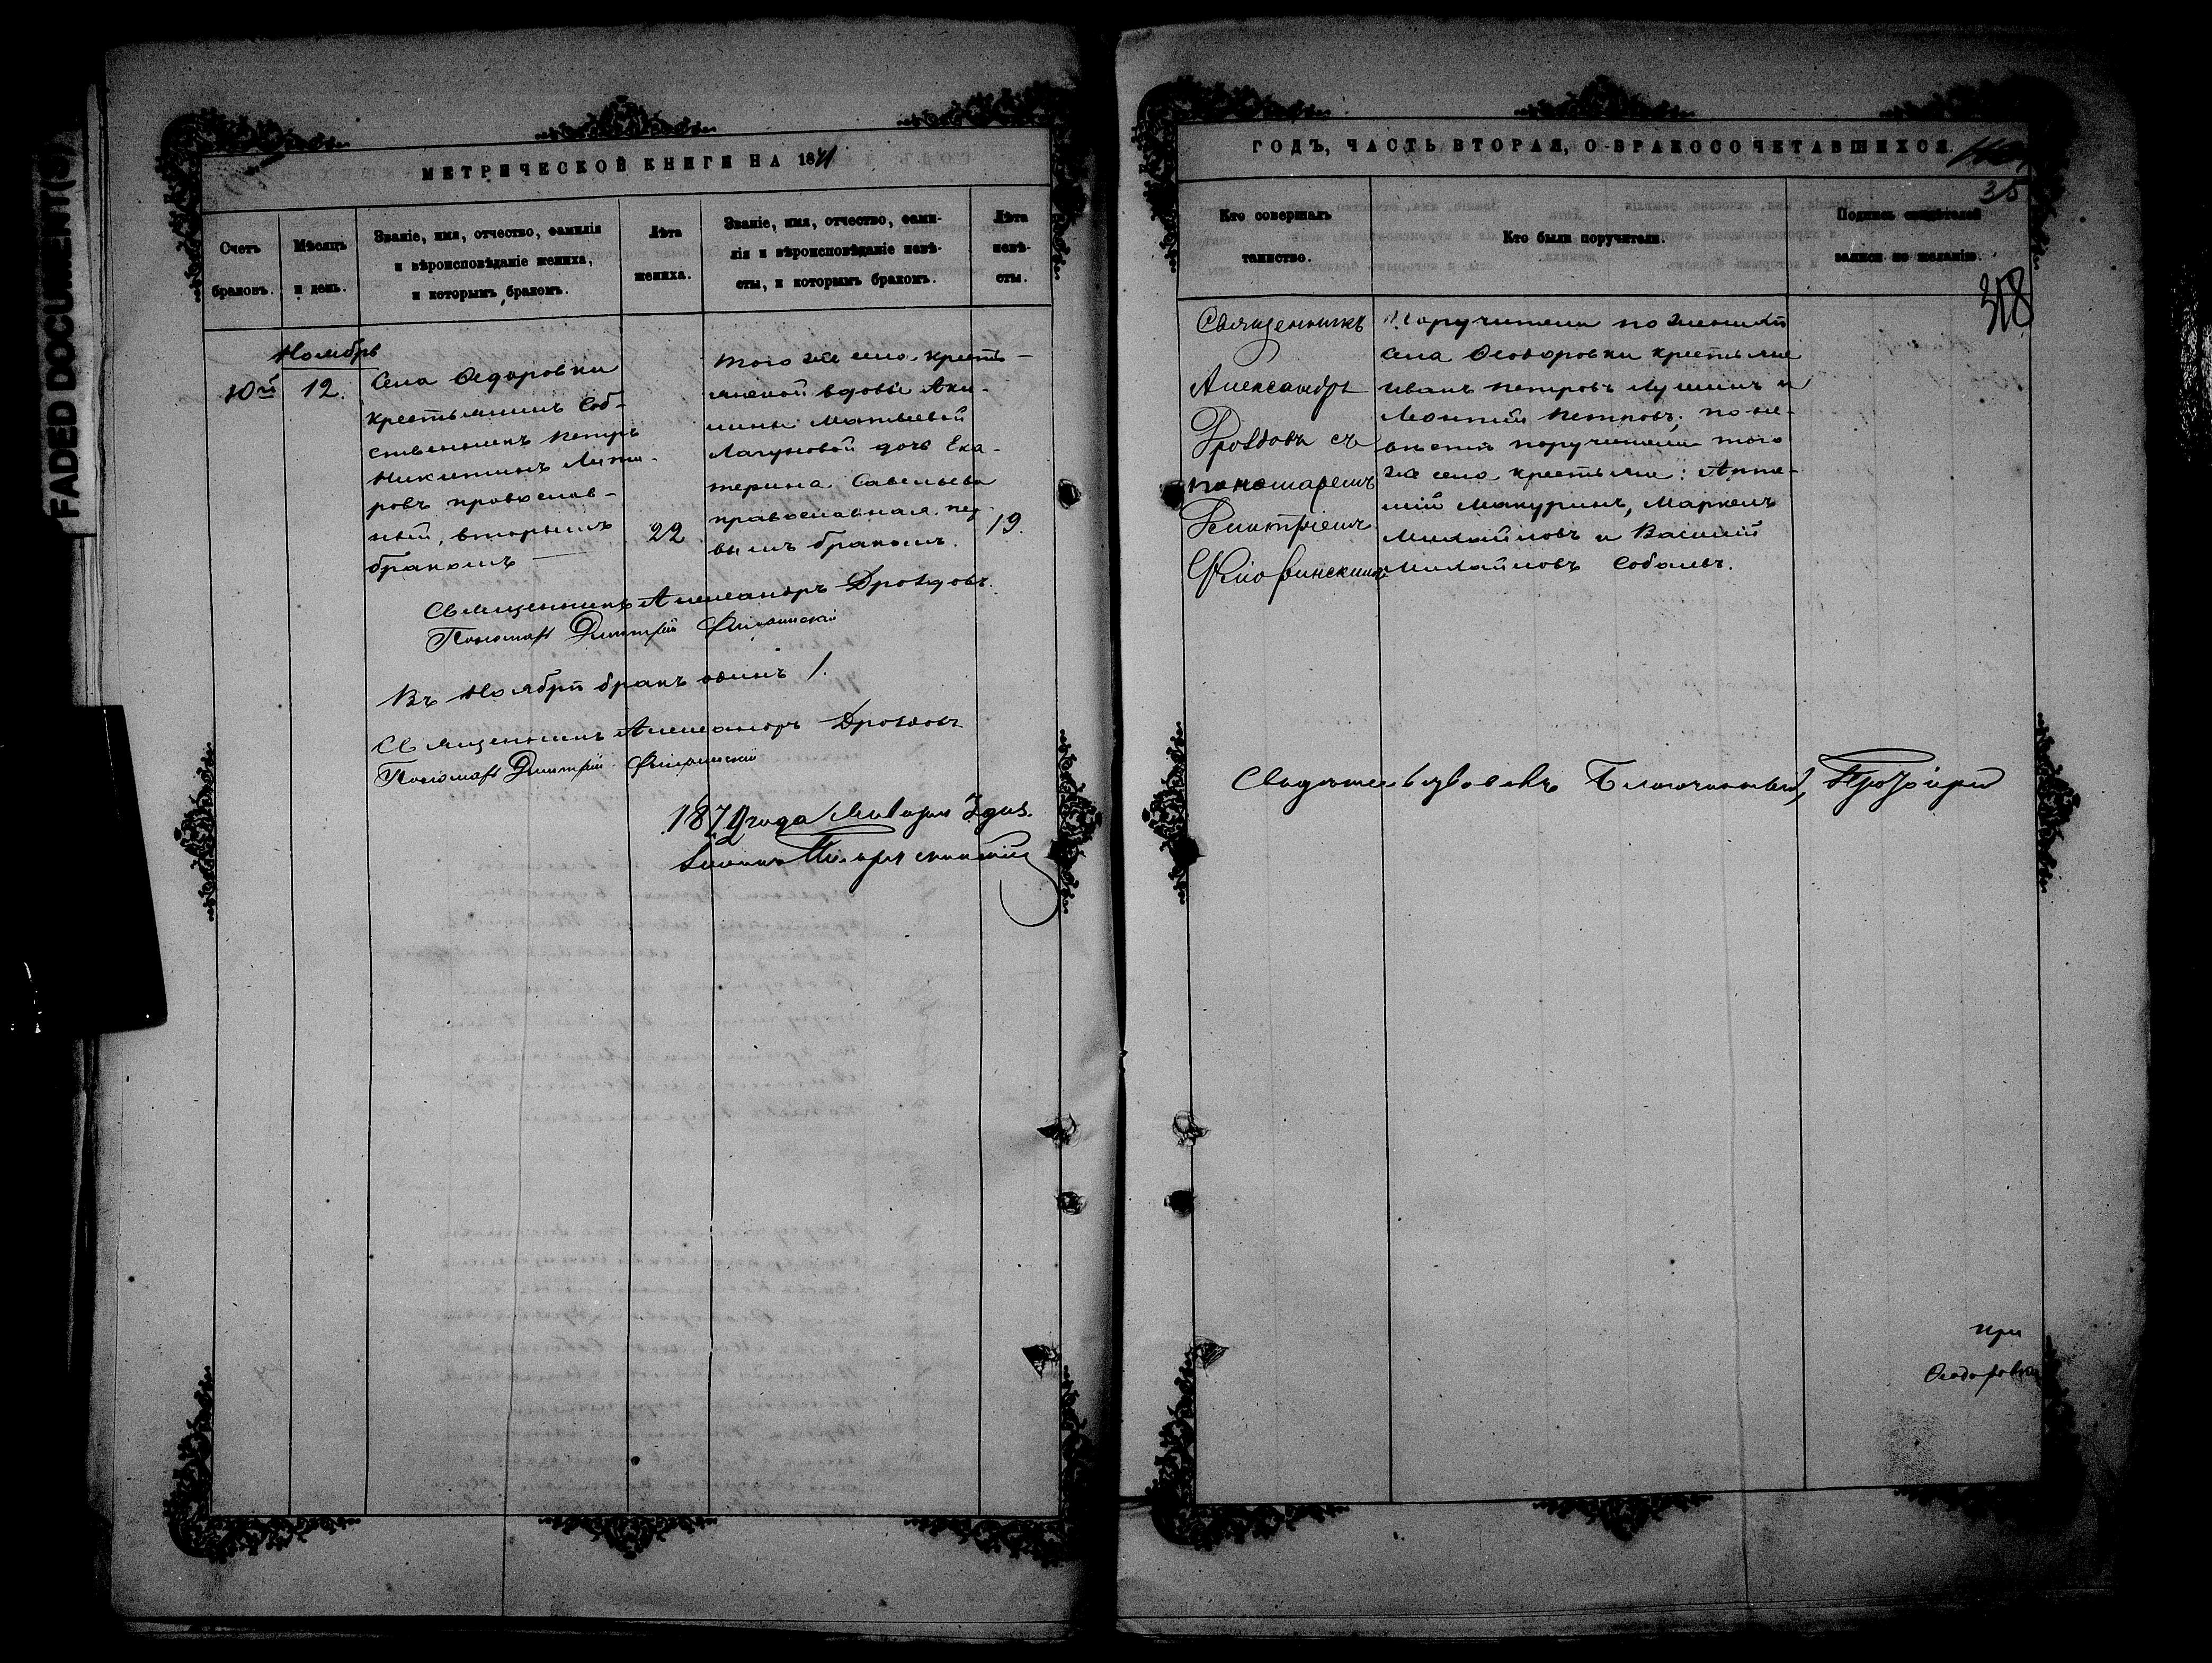 FADED DOCUMENT(S)
МЕТРИЧЕСКОЙ КНИГИ НА 1871
Счетъ браковъ.
Мѣсяцъ и день.
Званіе, имя, отчество, фамилія
и вѣроисповѣданіе жениха,
и которымъ бракомъ.
Лѣта жениха.
Званіе, имя, отчество, фами-
лія и вѣроисповѣданіе невѣ-
сты, и которымъ бракомъ.
Лѣта невѣ-
сты.
Ноябрь
10й
12.
Села Ѳедоровки
крестьянинъ Соб-
ственникъ Петръ
Никитинъ
ровъ православ-
ный, вторымъ
бракомъ
22
того же села крестъ-
янской вдовы Аку-
лины Матвеевой
Лагуновой дочь Ека-
терина Савельева
православная, пер-
вымъ бракомъ.
19.
Священникъ Александръ Дроздовъ.
Пономарь Димитрій
Въ Ноябрѣ бракъ одинъ 1.
Священникъ Александръ Дроздовъ
Пономарь Димитрій
года Января дня.
Іоаннъ
ГОДЪ, ЧАСТЬ ВТОРАЯ, О БРАКОСОЧЕТАВШИХСЯ.
35
318
Кто совершалъ
таинство.
Кто были поручители.
Подпись свидѣтелей
записи по желанію.
Священникъ
Александръ
Дроздовъ съ
пономаремъ
Димитріемъ
Поручители по женихѣ
села Ѳеодоровки крестьяне
Иванъ Петровъ Лушинъ и
Леонтій Петровъ; по не-
вѣстѣ поручители того
же села крестьяне: Арте-
мій Макуринъ, Маркелъ
Михайловъ и Василій
Михайловъ Соболевъ.
Свидѣтельствовалъ Благочинный, Протоіерей
при
Ѳеодоровки